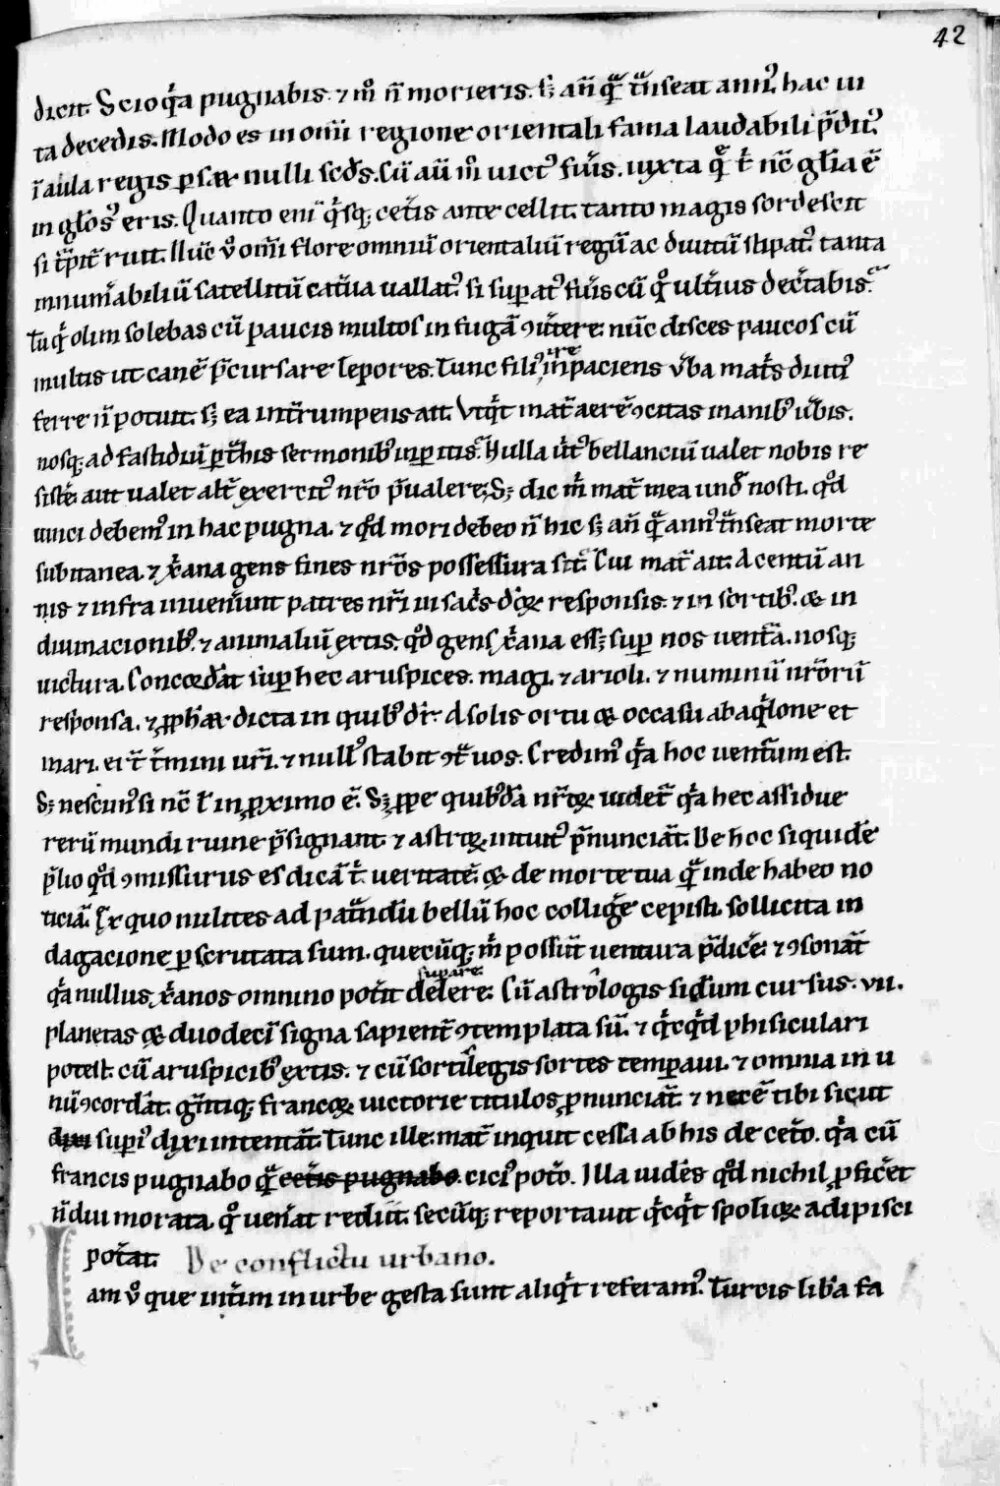 42
dicit. Scio qͣa pugnabis. ⁊ m̊ n̄ morieris. sꝫ an̄ qͣ tͣnseat ann᷒ hac ui
ta decedis. Modo es in om̄i regione orientali fama laudabili p̄dit᷒
⁊ aula regis psaꝝ nulli scds̄. Cū aū m̊ uict᷒ fuīs. iuxta qͣ t̄ nc̄ gl̄ia ē
in glos᷒ eris. Quanto eni qͥsqꝫ cet̄is ante cellit. tanto magis sordescit
si tp̄it̄ ruit. Nūc v̊ om̄i flore omniū orientaliū regū ac ducū stipat᷒ tanta
innum̄abiliū satellitū cat̄ua uallat᷒ si supat᷒ fuīs cū qͦ ult̄ius dec̄tabis.
Tu qͥ olim solebas cū paucis multos in fugā ꝯūtere. nūc disces paucos cū
multis ut canē p̄cursare lepores. Tunc fili᷒ inpaciens v̄ba mat̄s diuti᷒
ferre n̄ potuit. sꝫ ea int̄rumpens ait. Vtqͥt mat̄ aerē ꝯcitas manib᷒ ūbis.
nosqꝫ ad fastidiū ꝑtͣhis sermonib᷒ inꝑitis. Nulla ūt᷒ bellanciū ualet nobis re
sistē. aut ualet alt̄ exercit᷒ nr̄o p̄ualere. Sꝫ dic m̄ mat̄ mea undͤ nosti. qͦd
uinci debem᷒ in hac pugna. ⁊ qͦd mori debeo n̄ hic sꝫ an̄ qͣ ann᷒ tͣnseat morte
subitanea. ⁊ xͥana gens fines nr̄os possessura sit. Cui mat̄ ait. A centū an
nis ⁊ infra inuen̄unt patres nr̄i in sac̄s dͦꝝ responsis. ⁊ in sortib᷒. ⁊ in
diuinacionib᷒. ⁊ animaliū extis. qͦd gens xͥana eēt sup nos uent̄a. nosqꝫ
uictura. Concordāt sup hec aruspices. magi. ⁊ arioli. ⁊ numinū nr̄orū
responsa. ⁊ ꝓph̄aꝝ dicta in quib᷒ dr̄. A solis ortu ⁊ occasu ab aqͥlone et
mari. er̄t t̄mini ur̄i. ⁊ null᷒ stabit ꝯtͣ uos. Credim᷒ qͣa hoc uent̄um est.
Sꝫ nescim᷒ si nc̄ t̄ in ꝓximo ē. Sꝫ ꝓpe quib᷒dā nr̄oꝝ uidet̄ qͣa hec assidue
rerū mundi ruine p̄signant. ⁊ astroꝝ intuit᷒ p̄nunciāt. De hoc siquidē
p̄lio qͦd ꝯmissurus es dicā t̄. ueritatē. ⁊ de morte tua qͣ inde habeo no
ticiā. Ex quo milites ad patͣndū bellū hoc colliḡe cepisti. sollicita in
dagacione ꝑscrutata sum. quecūqꝫ m̄ possūt uentura p̄dicē. ⁊ ꝯsonāt
qͣa nullus xͥanos omnino pot̄it delere. supare. Cū astrologis sid̄um cursus. vii.
planetas ⁊ duodecī signa sapient̄ ꝯtemplata sū. ⁊ qͥcqͥd phisiculari
potest. cū aruspicib᷒ extis. ⁊ cū sortilegis sortes temꝑaui. ⁊ omnia in u
nū ꝯcordāt. gͤntiqꝫ francoꝝ uictorie titulos ꝓnunciāt. ⁊ necē tibi sicut
dixi supi᷒ dixi intentāt. Tunc ille. mat̄ inquit cessa ab his de cet̄o. qͣa cū
francis pugnabo qͣ cet̄is pugnabo. cici᷒ pot̄o. Illa uidēs qͦd nichil ꝓfic̄et
n̄ diu morata. qͦ uen̄at rediit. secūqꝫ reportauit qͥcqͥt spolioꝝ adipisci
pot̄at. De conflictu urbano.
Iam v̊ que int̄im in urbe gesta sunt aliqͥt referam᷒. Turcis lib̄a fa